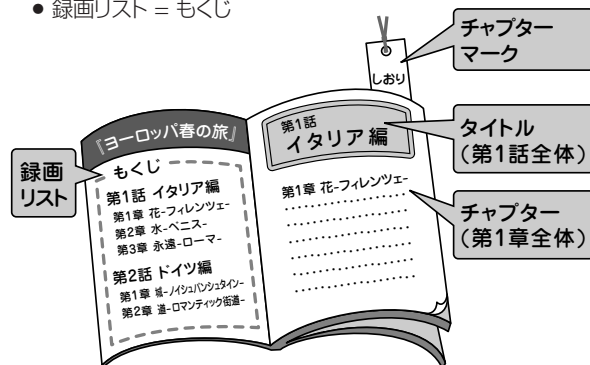 ● 録画リスト = もくじ
チャプター
マーク
しおり
『ヨーロッパ春の旅』
録画
リスト
もくじ
第1話 イタリア編
第1章 花-フィレンツェ-
第2章 水-ベニス-
第3章 永遠-ローマ-
第2話 ドイツ編
第1章 城-ノイシュバンシュタイン-
第2章 道-ロマンティック街道-
第1話
イタリア編
第1章 花-フィレンツェ-
タイトル
（第1話全体）
チャプター
（第1章全体）